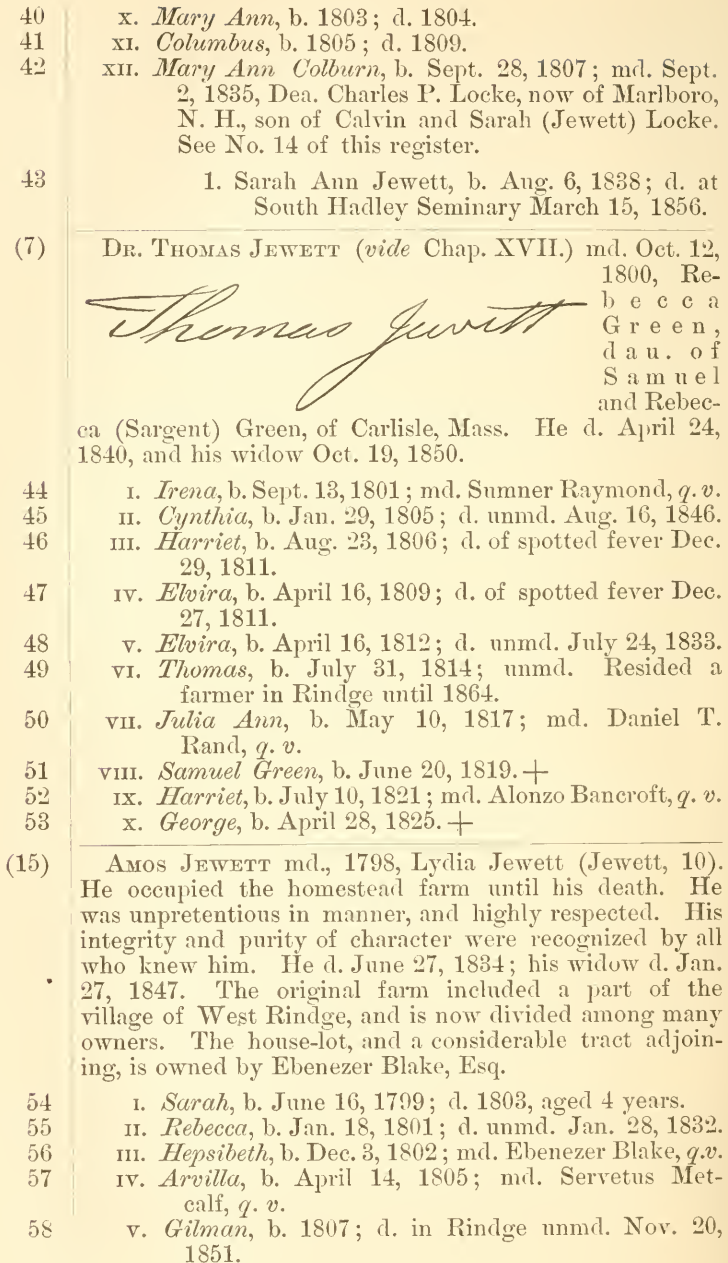 40 X. Mary Ann, b. 1803; d. 1804.
41 XI. Columbus, b. 1805; d. 1809.
42 XII. Mary Ann Colburn, b. Sept. 28, 1807; md. Sept.
2, 1835, Dea. Charles P. Locke, now of Marlboro,
N. H., son of Calvin and Sarah (Jewett) Locke.
See No. 14 of this register.
43 1. Sarah Ann Jewett, b. Aug. 6, 1838; d. at
South Hadley Seminary March 15, 1856.
(7) DR. THOMAS JEWETT (vide Chap. XVII.) md. Oct. 12,
1800, Re-
becca
Green,
dau. of
Samuel
and Rebec-
Thomas Jewett
ca (Sargent) Green, of Carlisle, Mass. He d. April 24,
1840, and his widow Oct. 19, 1850.
44 I. Irena, b. Sept. 13, 1801; md. Sumner Raymond, q. v.
45 II. Cynthia, b. Jan. 29, 1805; d. unmd. Aug. 16, 1846.
46 III. Harriet, b. Aug. 23, 1806; d. of spotted fever Dec.
29, 1811.
47 IV. Elvira, b. April 16, 1809; d. of spotted fever Dec.
27, 1811.
48 V. Elvira, b. April 16, 1812; d. unmd. July 24, 1833.
49 VI. Thomas, b. July 31, 1814; unmd. Resided a
farmer in Rindge until 1864.
50 VII. Julia Ann, b. May 10, 1817; md. Daniel T.
Rand, q. v.
51 VIII. Samuel Green, b. June 20, 1819.+
52 IX. Harriet, b. July 10, 1821; md. Alonzo Bancroft, q. v.
53 X. George, b. April 28, 1825.+
(15) AMOS JEWETT md., 1798, Lydia Jewett (Jewett, 10).
He occupied the homestead farm until his death. He
was unpretentious in manner, and highly respected. His
integrity and purity of character were recognized by all
who knew him. He d. June 27, 1834; his widow d. Jan.
27, 1847. The original farm included a part of the
village of West Rindge, and is now divided among many
owners. The house-lot, and a considerable tract adjoin-
ing, is owned by Ebenezer Blake, Esq.
54 I. Sarah, b. June 16, 1799; d. 1803, aged 4 years.
55 II. Rebecca, b. Jan. 18, 1801; d. unmd. Jan. 28, 1832.
56 III. Hepsibeth, b. Dec. 3, 1802; md. Ebenezer Blake, q.v.
57 IV. Arvilla, b. April 14, 1805; md. Servetus Met-
calf, q. v.
58 V. Gilman, b. 1807; d. in Rindge unmd. Nov. 20,
1851.